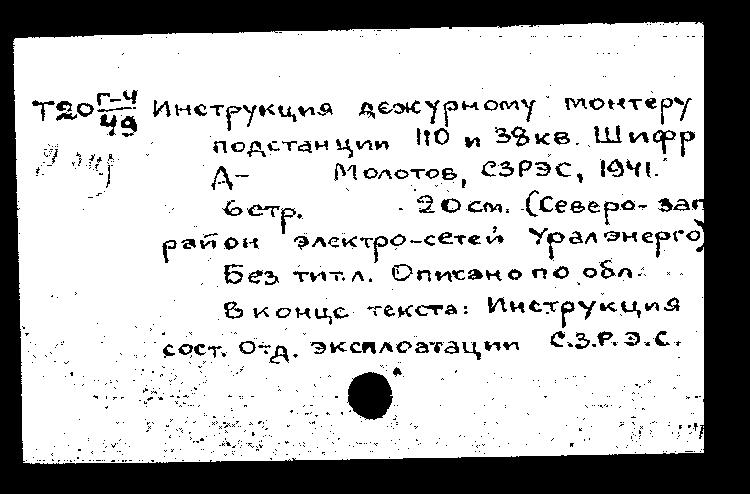 Т20 Г-4/49 Инструкция дежурному монтеру
подстанции 110 и 38кв. Шифр
Д- Молотов, СЗРЭС, 1941.
6стр. 20см. (Северо-зап
район электро-сетей Уралэнерго)
Без тит.л. Описано по обл.
В конце текста: Инструкция
сост. Отд. эксплоатации С.З.Р.Э.С.